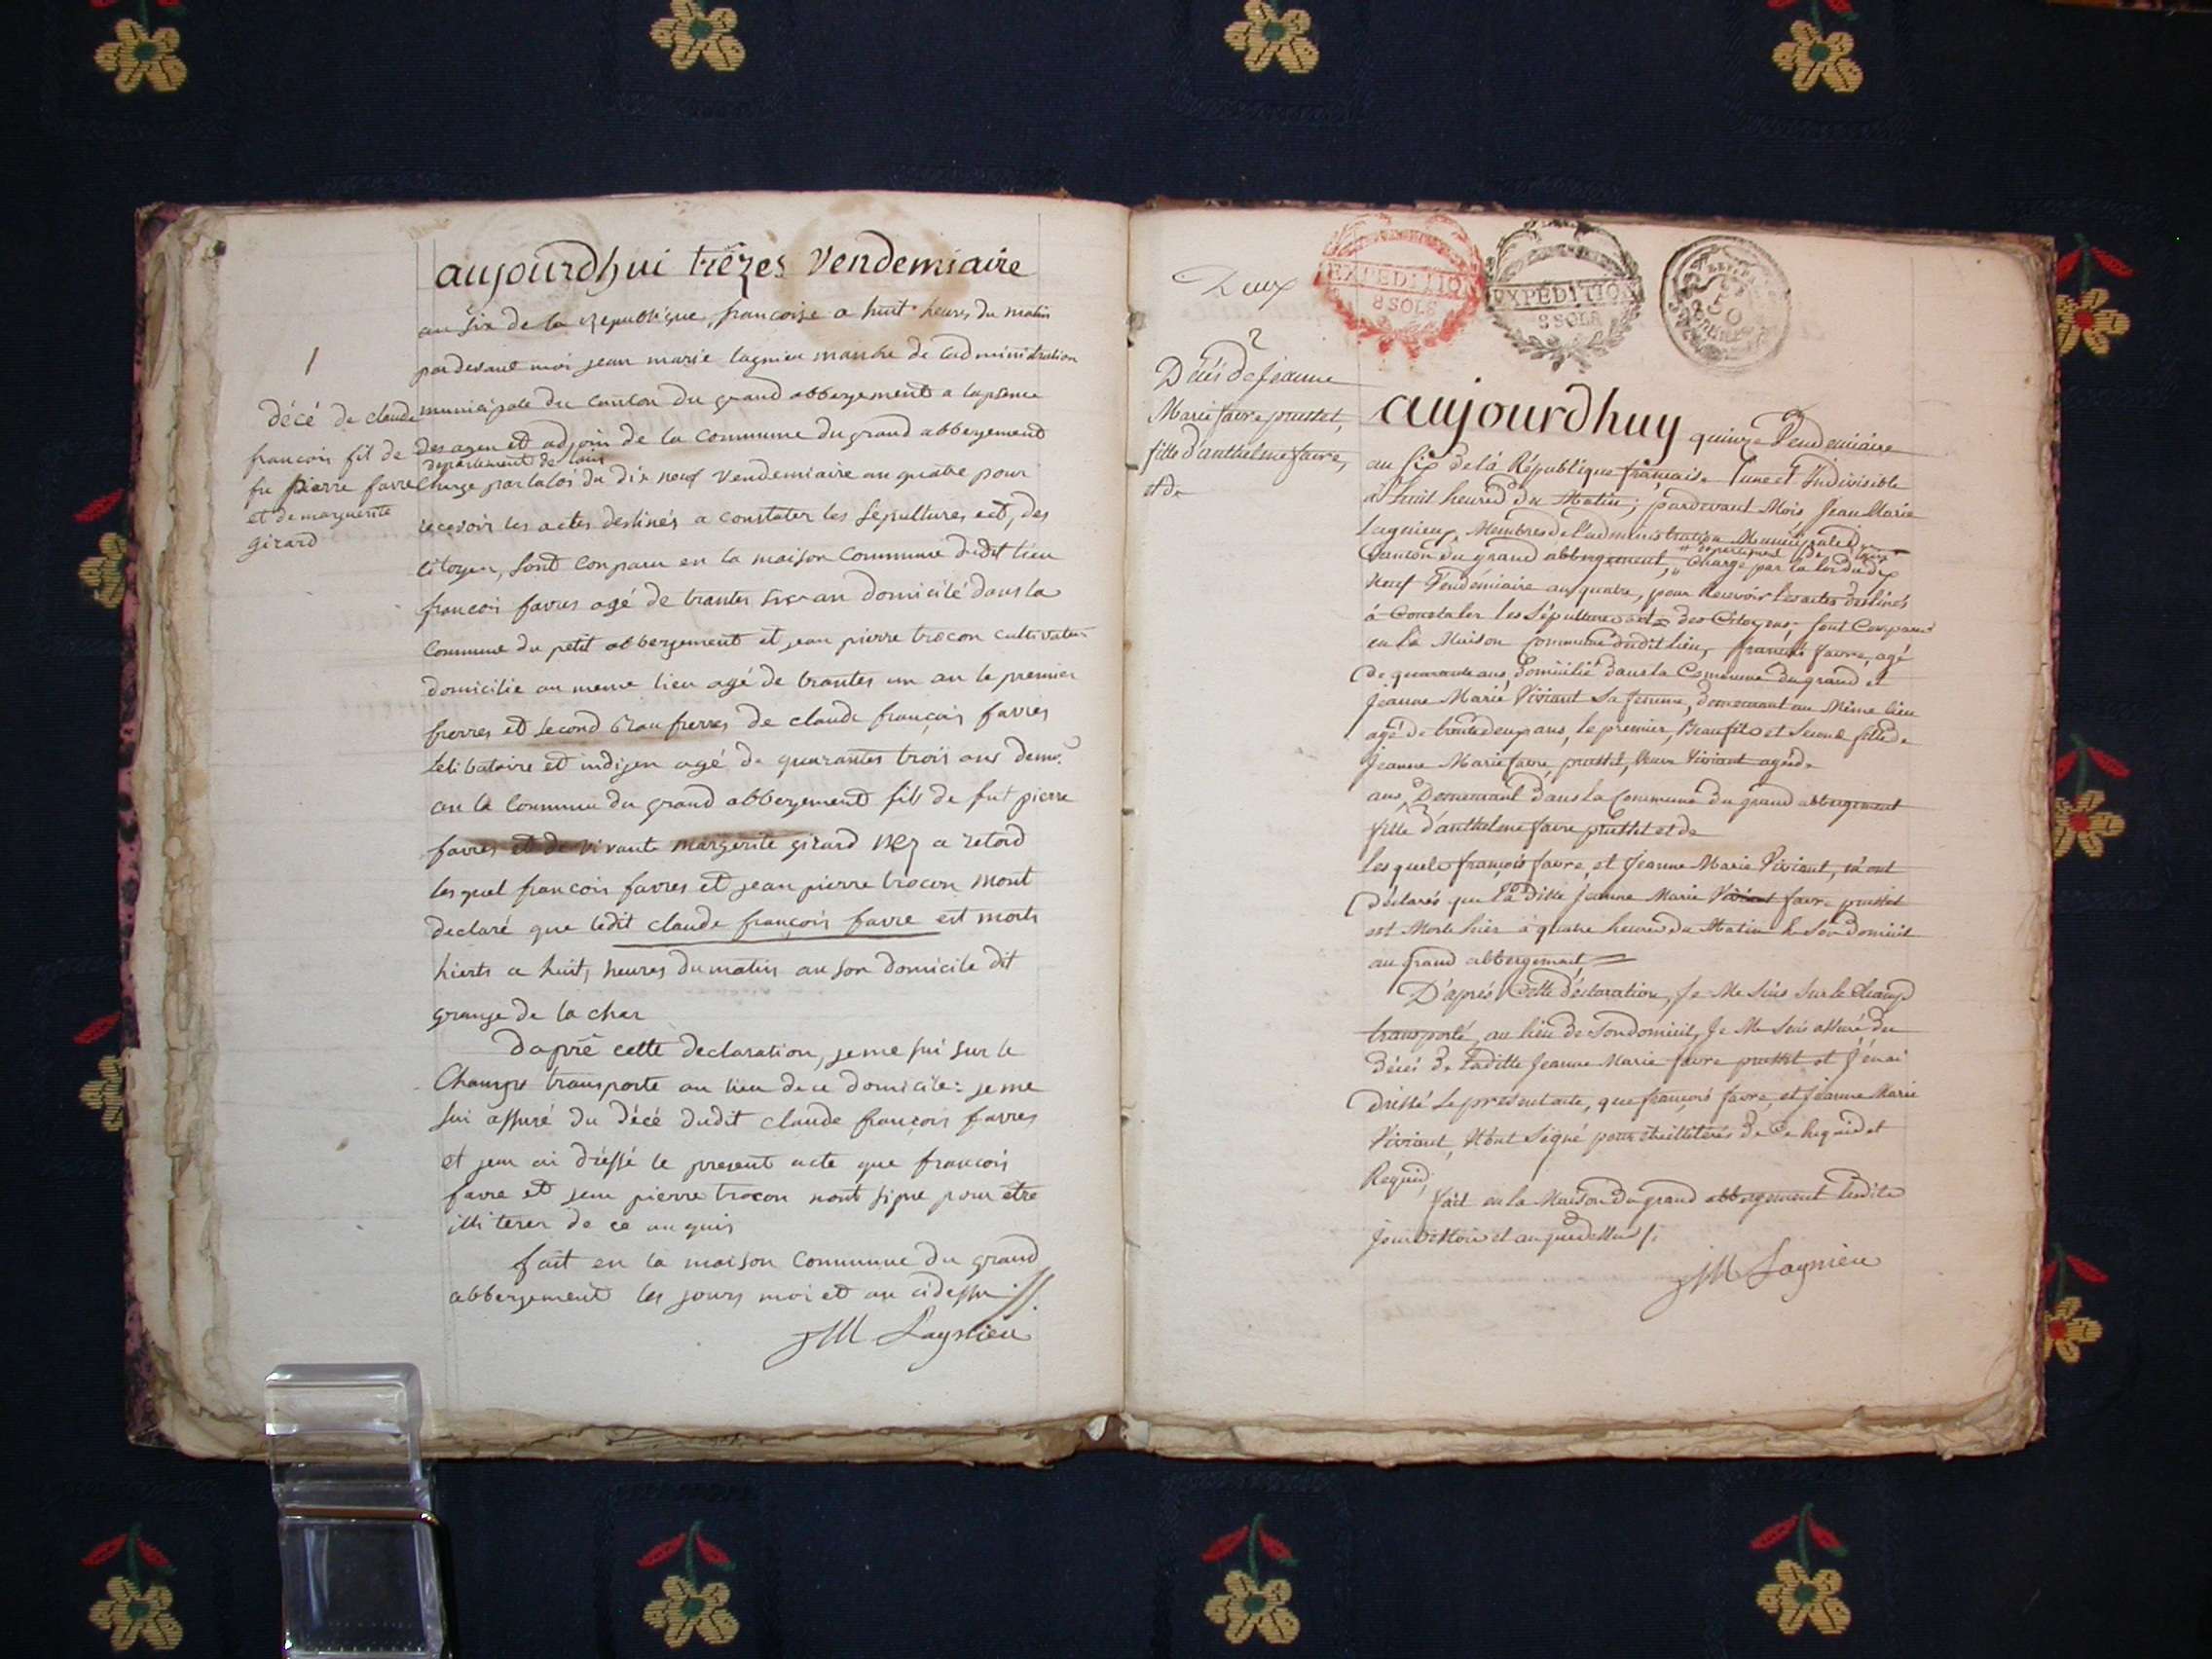 1
décé de claude
francois fil de
fu pierre favre
et de marguerite
girard
aujourdhui trézes Vendemiaire
an six de la republique francoise a huit heures du matin
par devant moi jean marie lagnieu manbre de ladministration
municipale du canton du grand abbergement a la
des agen et adjoin de la commune du grand abbergement
departement de lain
charge par la loi du dix neuf vendemiaire an quatre pour
recevoir les actes destinés a constater les sépultures ect, des
citoyen, sont conparu en la maison commune dudit lieu
francois favres agé de trantes six an domicilé dans la
commune du petit abbergement et jean pierre trocon cultivateur
domicilie au meme lieu agé de trantes un an le premier
frerres et second beaufrerres de claude françois favres
selibataire et indijen agé de quarantes trois ans demt
an la commune du grand abbergement fils de fut pierre
favres et de vivante margerite girard nez a retord
lesquel francois favres et jean pierre trocon mont
declaré que ledit claude françois favre est morts
hierts a huit, heures du matin au son domicile dit
grange de la char
daprê cette declaration, je me sui sur le
Champs transporte au lieu de ce domicile: je me
sui assuré du décé dudit claude françois favres
et jeen ai dréssé le present acte que françois
favre et jean pierre trocon nont signe pour etre
illiterer de ce anquis
fait en la maison commune du grand
abbergement les jours moi et an cidessu
JM Lagnieu
Deux
EXPEDITION
8 SOLS
EXPEDITION
8 SOLS
50
2
Décés de Jeanne
Marie favre prusset,
fille d'anthelme favre,
et de
aujourdhuy quinze Vendemiaire
an six de la République française Une et Indivisible
à huit heures du Matin; pardevant Mois Jean Marie
Lagnieu, Membres de l'administration Municipalle
Canton du grand abbergement, Chargé par la loi du dix
departement de lain
Neuf Vendémiaire an quatre, pour Recevoir les actes destinés
à Constater les Sépultures des Citoyens, sont Comparus
en la Maison Commune dudit lieu, françois favre, agé
de quarante ans, domicilié dans la Commune du grand et
Jeanne Marie Viviant Sa femme, demeurant au Même lieu
agé de trente deux ans, le premier, Beaufils et Seconde fille de
Jeanne Marie favre, prusset, Viviant agée de
ans, Demeurant dans la Commune du grand abbergement
fille d'anthelme favre prusset et de
Lesquels françois favre, et Jeanne Marie Viviant, m'ont
déclarés que la ditte Jeanne Marie Viviant favre prusset
est Morte hier à quatre heures du Matin à Son Domicil
au grand abbergement
D'aprés Cette déclaration, Je Me Suis Sur le Champ
transporté, au lieu de Son domicil, Je Me Suis assuré du
décés de Laditte Jeanne Marie favre prusset et J'en ai
dressé Le présent acte, que françois favre, et Jeanne Marie
Viviant, N'ont Signé pour être illiterés de Ce Requis et
Requis,
fait en la Maison du grand abbergement Lesdits
jour Mois et an que dessus
JM Lagnieu